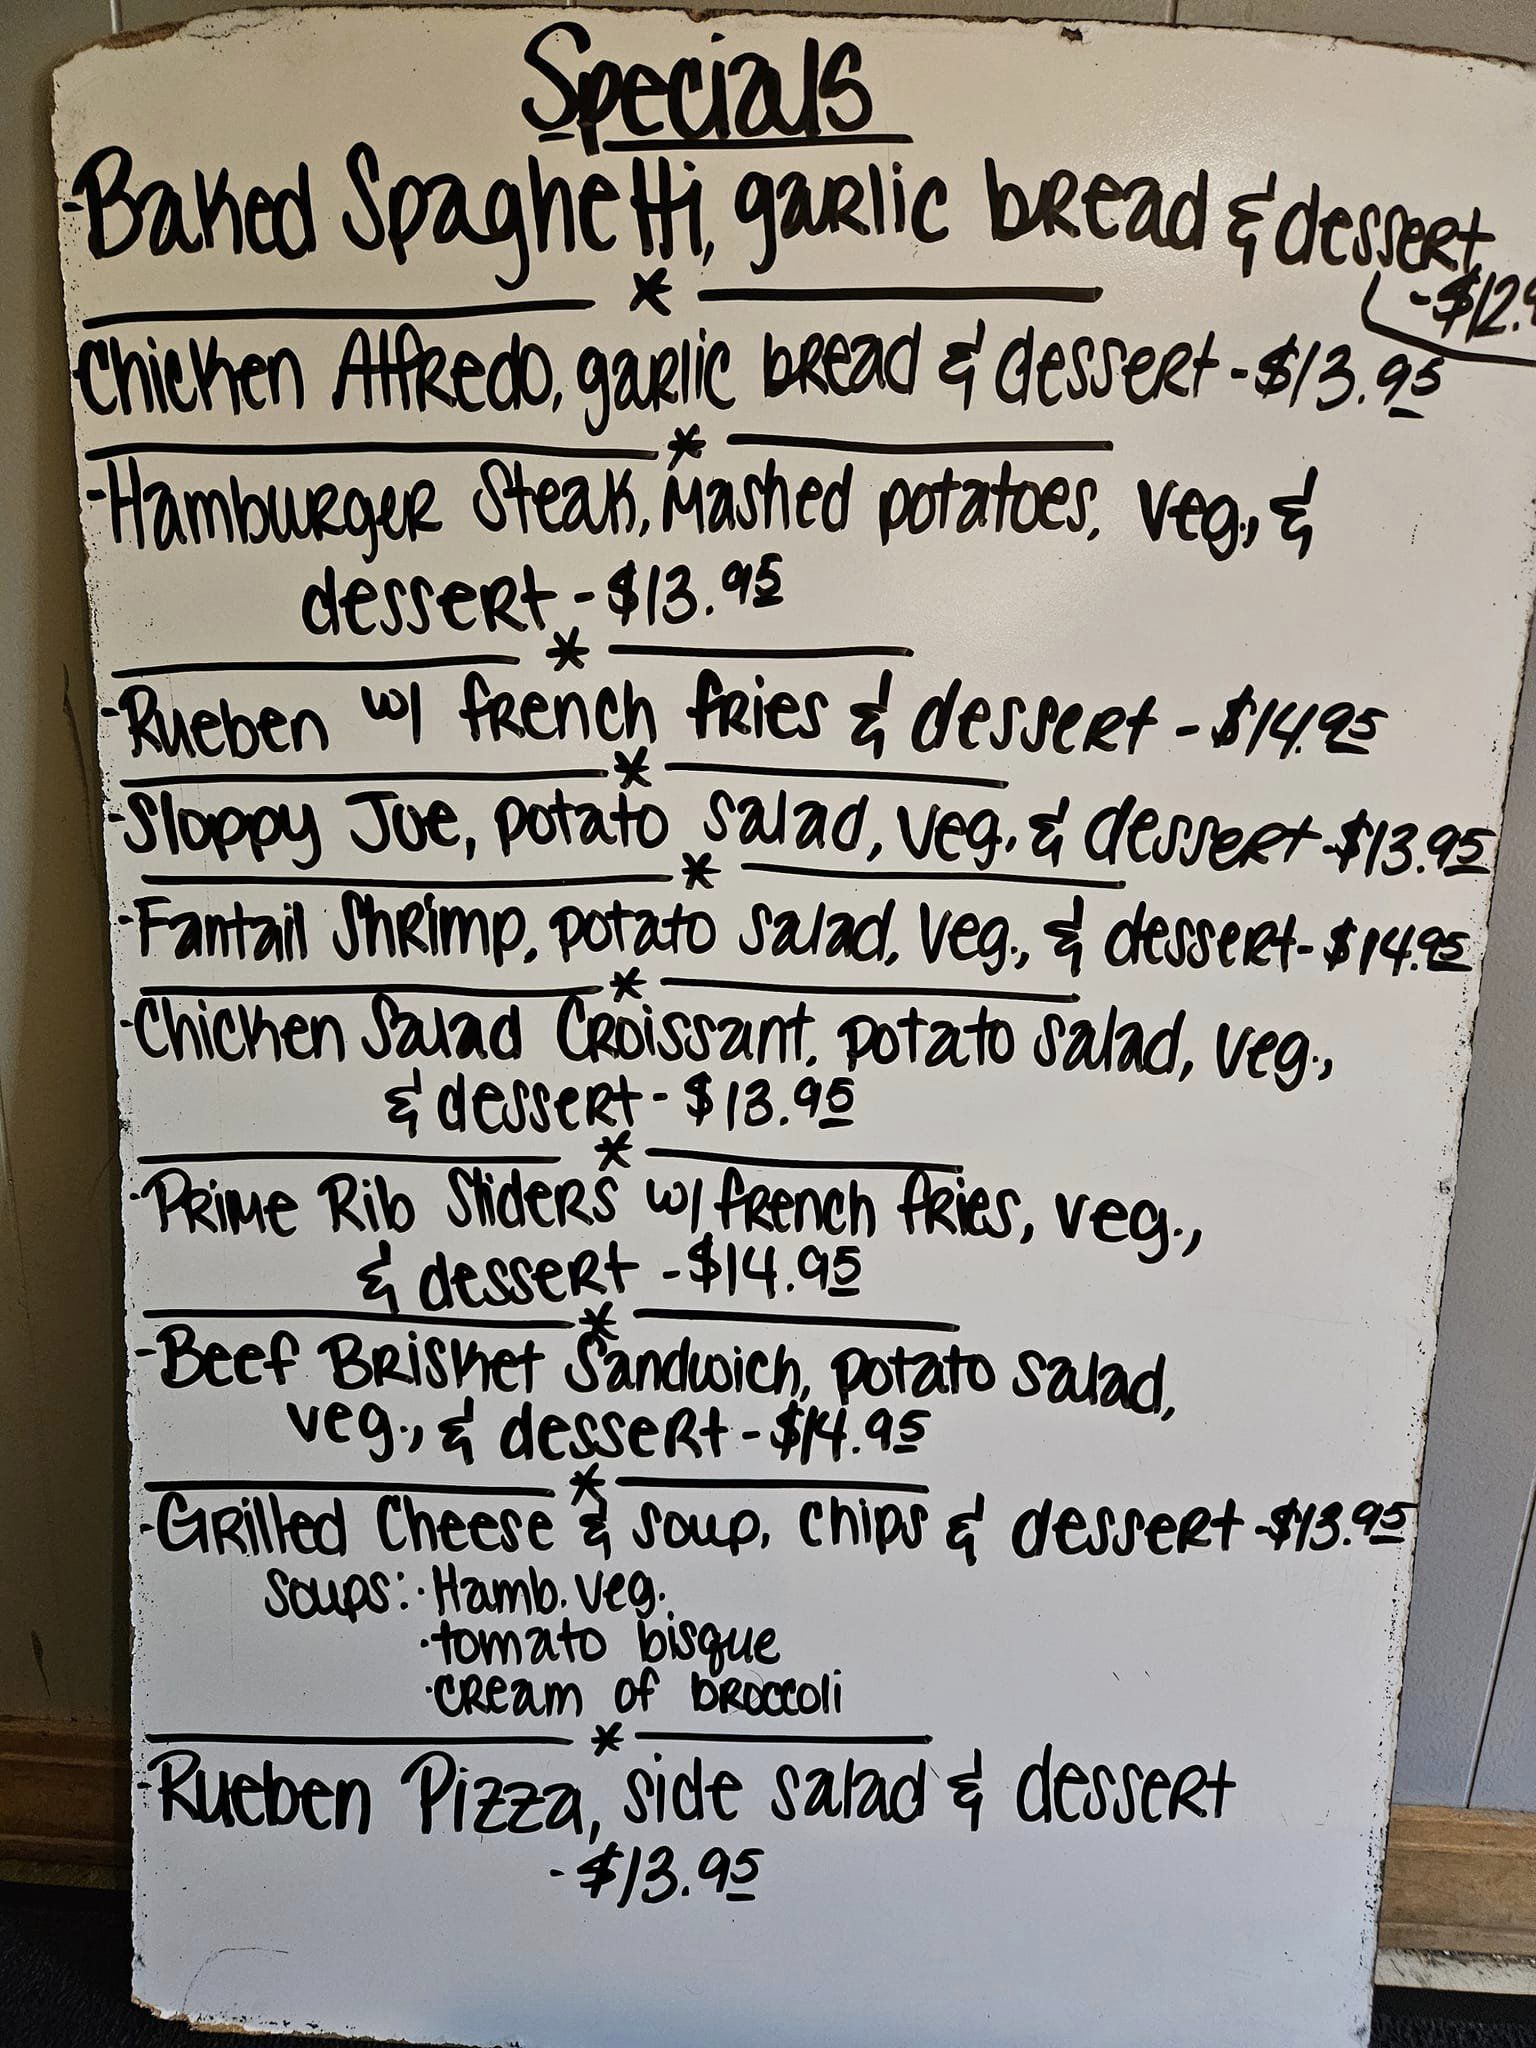 Specials
-Baked Spaghetti, garlic bread & dessert
-$12.9
-Chicken Alfredo, garlic bread & dessert -$13.95
-Hamburger Steak, Mashed potatoes, veg., &
dessert -$13.95
-Rueben w/ french fries & dessert -$14.95
-Sloppy Joe, potato salad, veg. & dessert -$13.95
-Fantail Shrimp, potato salad, veg., & dessert-$14.95
-Chicken Salad Croissant, potato salad, veg.,
& dessert -$13.95
-Prime Rib Sliders w/ french fries, veg.,
& dessert -$14.95
-Beef Brisket Sandwich, potato salad,
veg., & dessert -$14.95
-Grilled Cheese & soup, chips & dessert -$13.95
soups: ·Hamb. veg.
·tomato bisque
·cream of broccoli
-Rueben Pizza, side salad & dessert
-$13.95